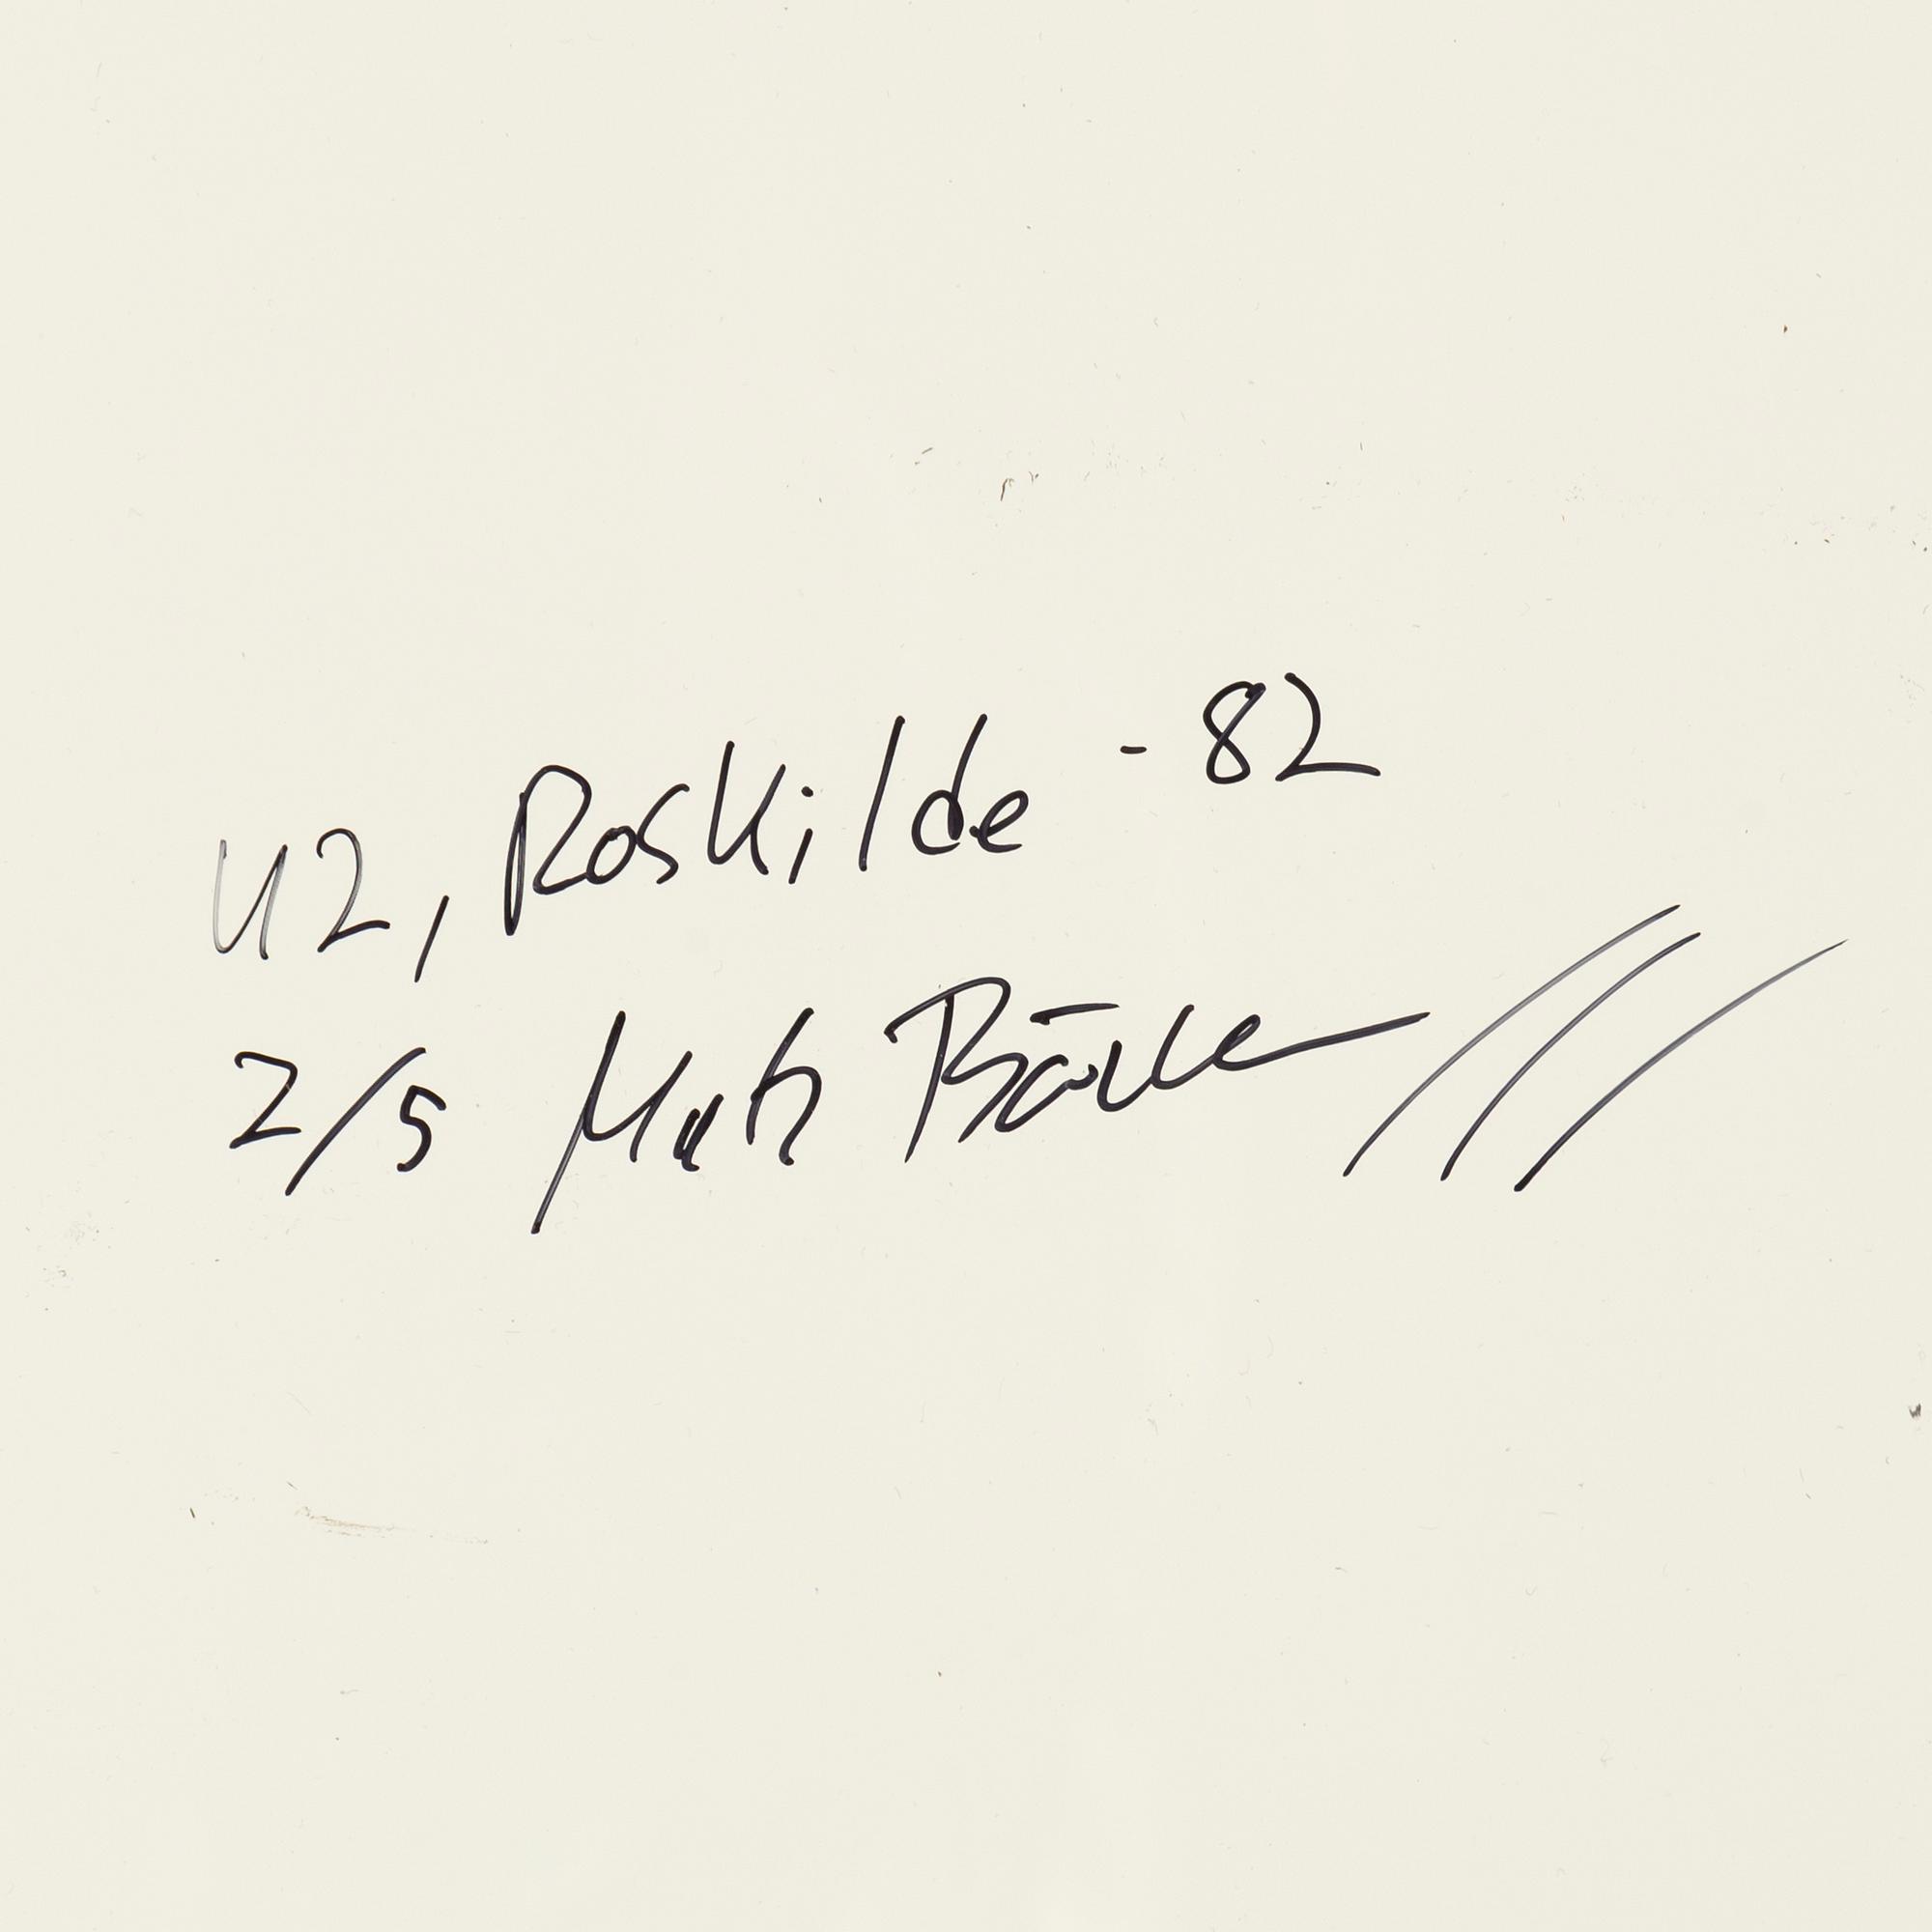 U2, Roskilde -82
2/5 Mats Bäcker